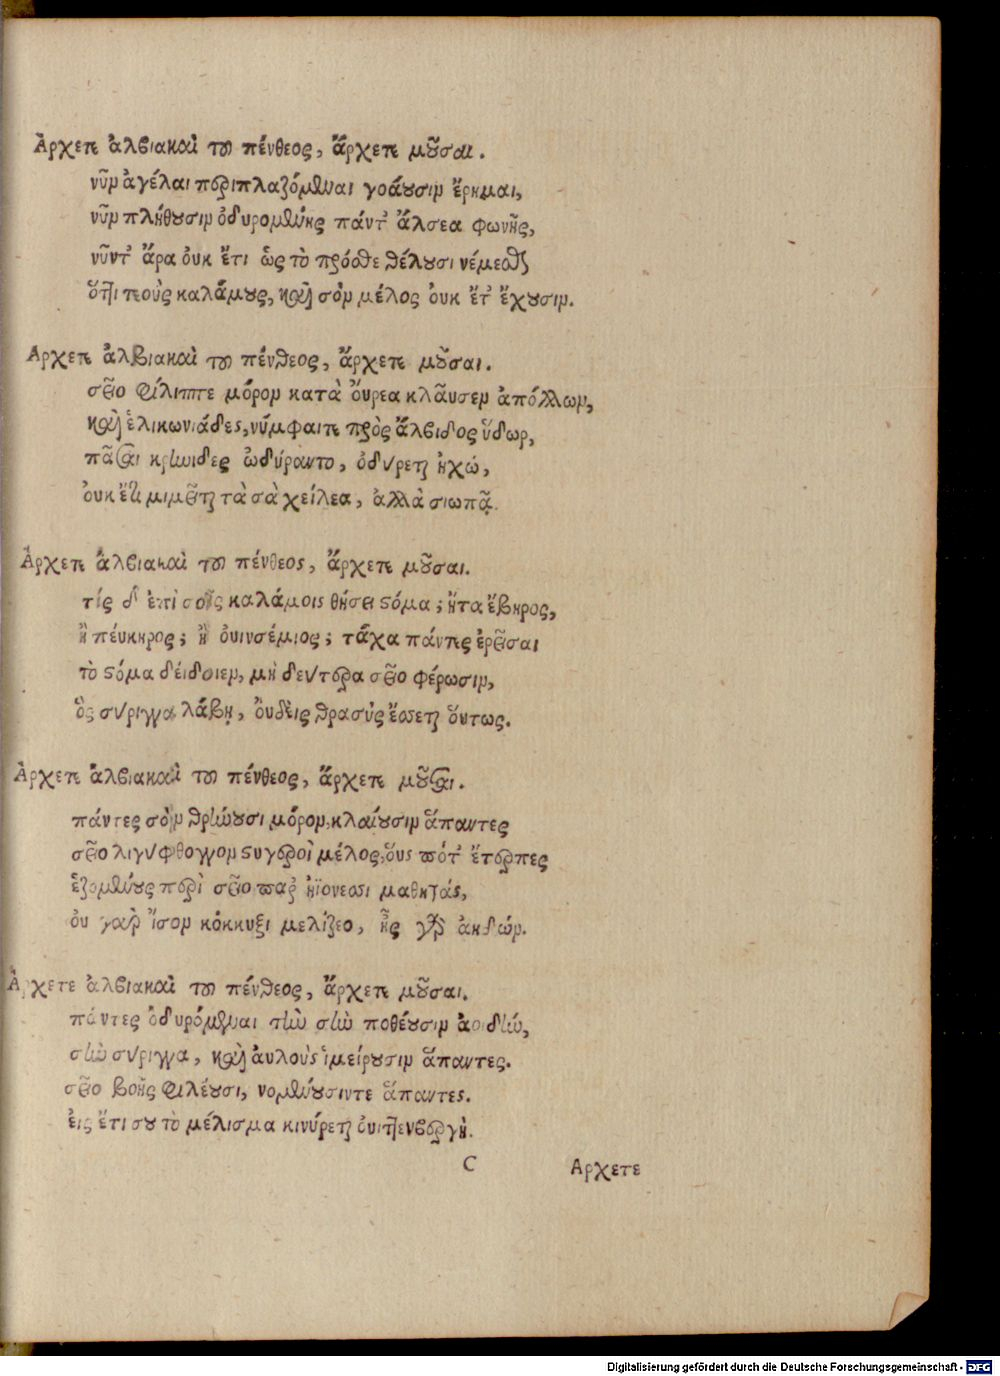 Ἄρχετε ἀλβιακαὶ τοῦ πένθεος, ἄρχετε μοῦσαι.
νῦν ἀγέλαι περιπλαζόμεναι γοάουσιν ἔρημαι,
νῦν πλήθουσιν ὀδυρομένης πάντ' ἄλσεα φωνῆς,
νῦντ' ἄρα ὀυκ ἔτι ὡς τὸ πρόσθε θέλουσι νέμεσθαι
ὅτι τεοὺς καλάμους, καὶ σὸν μέλος ὀυκ ἔτ' ἔχουσιν.
Ἄρχετε ἀλβιακαὶ τοῦ πένθεος, ἄρχετε μοῦσαι.
σεῖο φίλιππε μόρον κατὰ ὄυρεα κλαῦσεν ἀπόλλων,
καὶ ἑλικωνιάδες, νύμφαιτε πρὸς ἄλβιδος ὕδωρ,
πᾶσαι κρηνιδες ὠδύραντο, ὀδύρεται ἠχώ,
ὀυκ ἔτι μιμεῖται τὰ σὰ χείλεα, ἀλλὰ σιωπᾷ.
Ἄρχετε ἀλβιακαὶ τοῦ πένθεος, ἄρχετε μοῦσαι.
τίς δ' ἐπὶ σοῖς καλάμοις θήσει στόμα; ἤτα ἔβηρος,
ἢ πέυκηρος; ἢ ὀυινσέμιος; τάχα πάντες ἐρεῖσαι
τὸ στόμα δείδοιεν, μὴ δεύτερα σεῖο φέρωσιν,
ὃς σύριγγα λάβῃ, ὀυδεὶς θρασὺς ἔσσεται ὅυτως.
Ἄρχετε ἀλβιακαὶ τοῦ πένθεος, ἄρχετε μοῦσαι.
πάντες σὸν θρηνουσι μόρον, κλαίουσιν ἅπαντες
σεῖο λιγύφθογγον στυγεροὶ μέλος, ὅυς ποτ' ἔτερπες
ἑζομένους περὶ σεῖο παρ' ἠϊόνεσσι μαθητάς,
ὀυ γὰρ ἴσον κόκκυξι μελίζεο, ἦς γὰρ ἀηδών.
Ἄρχετε ἀλβιακαὶ τοῦ πένθεος, ἄρχετε μοῦσαι.
πάντες ὀδυρόμεναι τὴν σὴν ποθέουσιν ἀοιδήν,
σὴν σύριγγα, καὶ ἀυλοὺς ἱμείρουσιν ἅπαντες.
σεῖο βοῆς φιλέουσι, νομένουσιντε ἅπαντες.
ἐις ἔτι σου τὸ μέλισμα κινύρεται ὀυιτενβεργὴ.
C Αρχετε
Digitalisierung gefördert durch die Deutsche Forschungsgemeinschaft - DFG